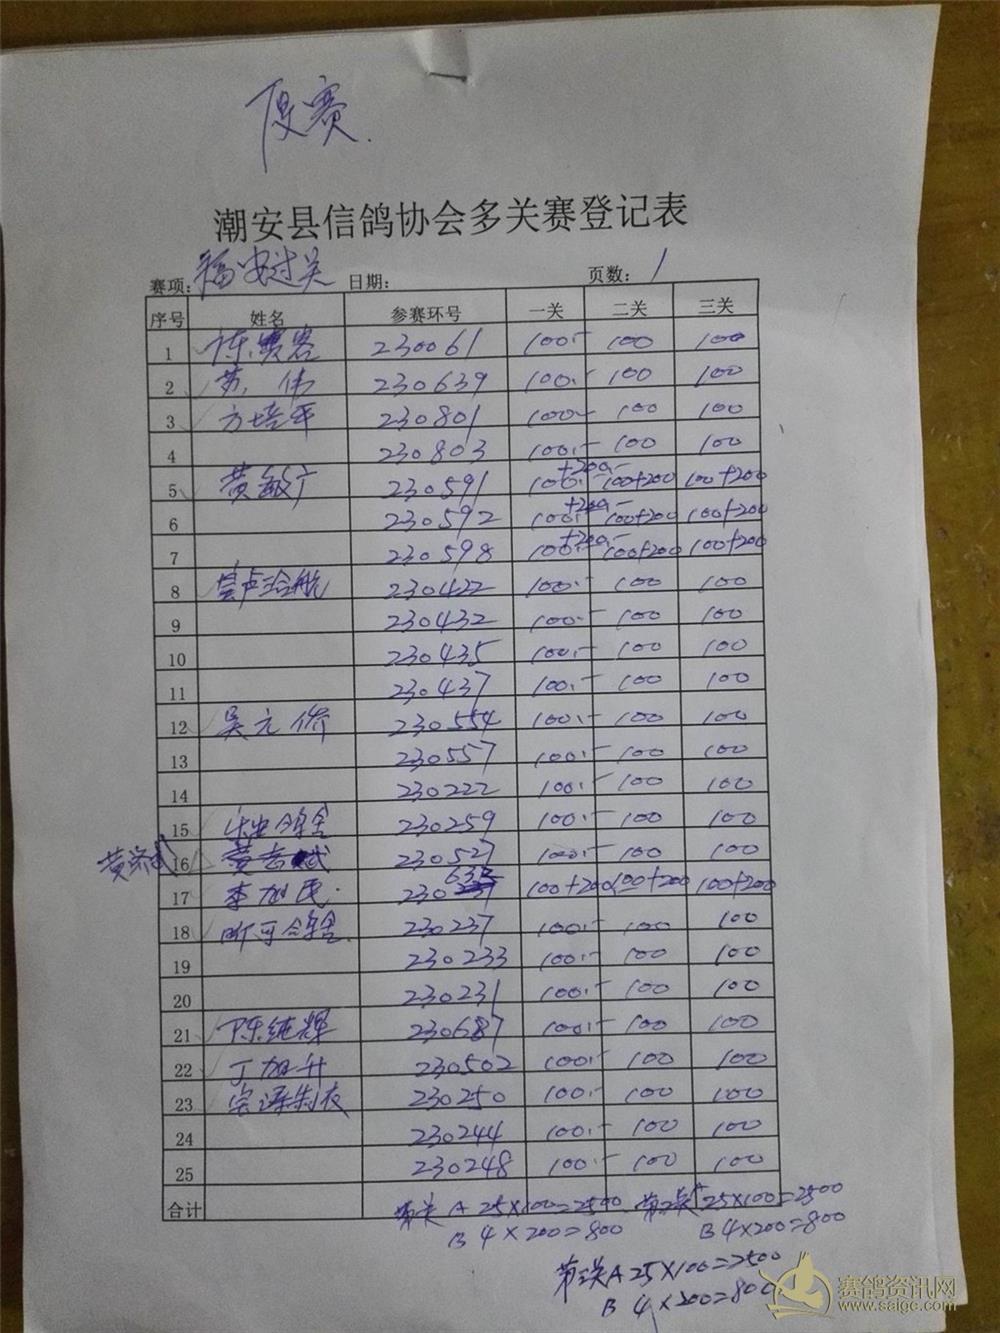 复赛.
潮安县信鸽协会多关赛登记表
赛项: 福安过关 日期: 页数: 1
序号 姓名 参赛环号 一关 二关 三关
1 陈 230061 100.- 100 100
2 苏伟 230639 100.- 100 100
3 方培平 230801 100- 100 100
4 230803 100.- 100 100
5 黄敏广 230591 100.+200.- 100+200 100+200
6 230592 100.+200.- 100+200 100+200
7 230598 100.+200.- 100+200 100+200
8 230422 100.- 100 100
9 230432 100.- 100 100
10 230435 100.- 100 100
11 230437 100.- 100 100
12 吴元侨 230554 100.- 100 100
13 230557 100.- 100 100
14 230222 100.- 100 100
15 鸽舍 230259 100.- 100 100
黄 16 230527 100.- 100 100
17 李旭民. 230 100+200 100+200 100+200
18 昕可鸽舍. 230237 100.- 100 100
19 230233 100.- 100 100
20 230231 100.- 100 100
21 陈纯辉 230687 100.- 100 100
22 丁加升 230502 100.- 100 100
23 制衣 230250 100.- 100 100
24 230244 100.- 100 100
25 230248 100.- 100 100
合计 第关 A 25×100=2500 第关A 25×100=2500
B 4×200=800 B 4×200=800
第关A 25×100=2500
B 4×200=800
赛鸽资讯网
www.saigc.com